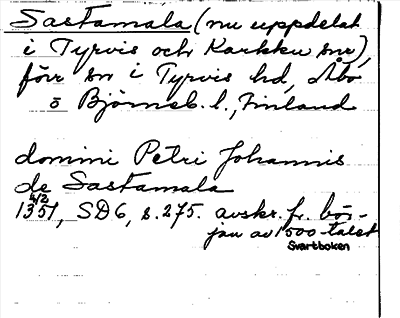 Sastamala (nu uppdelat
i Tyrvis och Karkku snr),
förr sn i Tyrvis hd, Åbo
o Björneb. l., Finland
domini Petri Johannis
de Sastamala
4/2
1351, SD6, s. 275. avskr. fr. bör-
jan av 1500-talet
Svartboken